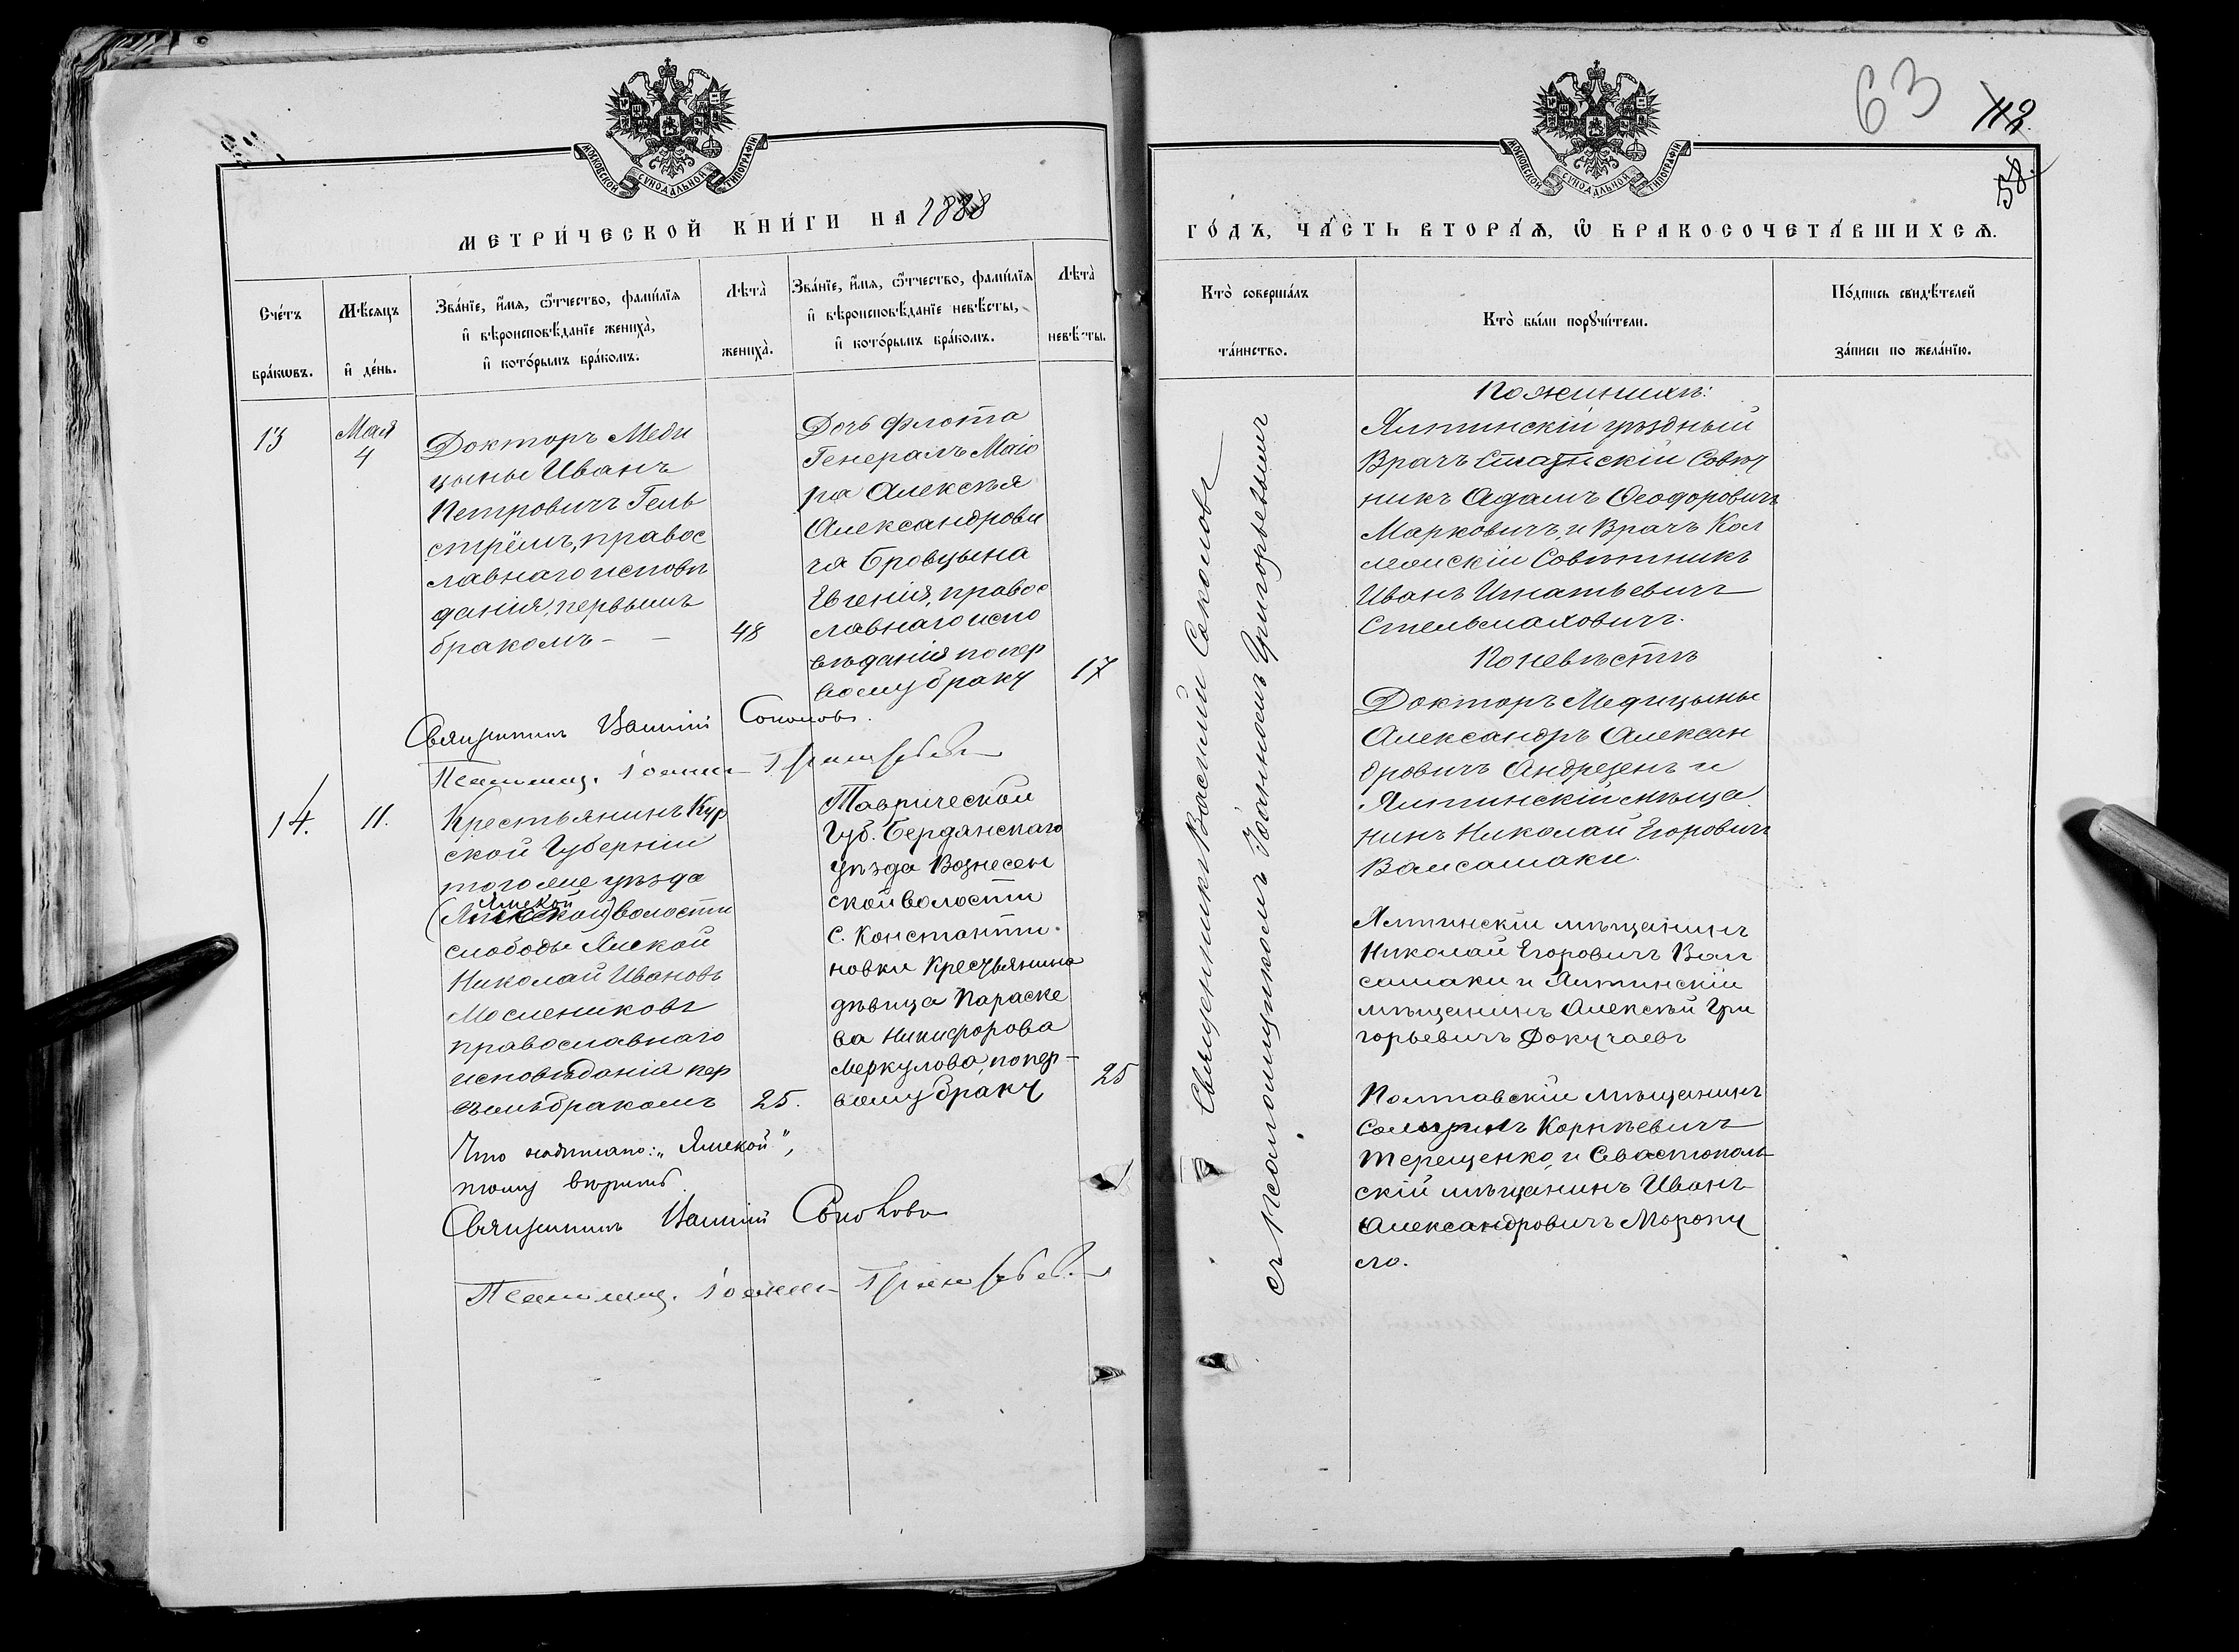 МОСКОВСКОЙ СѴНОДАЛЬНОЙ ТИПОГРАФІИ
МЕТРИ́ЧЕСКОЙ КНИ́ГИ НА 1888
Сче́тъ бра́кѡвъ.
Мѣ́сяцъ и҆ де́нь.
Зва́нїе, и҆́мя, ѻ҆́тчество, фами́лїя
и҆ вѣроисповѣ́данїе жениха̀,
и҆ кото́рымъ бра́комъ.
Лѣта̀ жениха̀.
Зва́нїе, и҆́мя, ѻ҆́тчество, фами́лїя
и҆ вѣроисповѣ́данїе невѣ́сты,
и҆ кото́рымъ бра́комъ.
Лѣта̀ невѣ́сты.
13
Мая
4
Докторъ Меди
цыны Иванъ
Петровичъ Гель
стрёмъ, правос
лавнаго исповѣ
данія, первымъ
бракомъ - -
48
Дочь флота
Генералъ Маіо
ра Алексѣя
Александрови
ча Бровцына
Евгенія, правос
лавнаго испо
вѣданія попер
вому браку
17
Священникъ Василій Соколовъ.
Псаломщ. Іоаннъ Григорьевъ
14.
11.
Крестьянинъ Кур
ской Губерніи
того же уѣзда
Ямской
волости
слободы Ямской
Николай Ивановъ
Маслениковъ
православнаго
исповѣданія пер
вымъ бракомъ
25.
Таврической
Губ. Бердянскаго
уѣзда Вознесен
ской волости
с. Константи-
новки Крестьянина
дѣвица Параске
ва Никифорова
Меркулова, попер-
вому браку
25
Что надписано: „Ямской",
тому вѣрить
Священникъ Василій Соколовъ
Псаломщ. Іоаннъ Григорьевъ
63
112.
58.
МОСКОВСКОЙ СѴНОДАЛЬНОЙ ТИПОГРАФІИ
ГО́ДЪ, ЧА́СТЬ ВТОРА́Я, Ѡ҆ БРАКОСОЧЕТА́ВШИХСЯ.
Кто̀ соверша́лъ та́инство.
Кто̀ бы́ли порꙋчи́тели.
По́дпись свидѣ́телей за́писи по жела́нїю.
Священникъ Василій Соколовъ
съ Псаломщикомъ Іоанномъ Григорьевымъ
По женихѣ:
Ялтинскій уѣздный
Врачъ Статскій Совѣт
никъ Адамъ Ѳеодоровичъ
Марковичъ, и Врачъ Кол
лежскій Совѣтникъ
Иванъ Игнатьевичъ
Стельмаховичъ.
По невѣстѣ
Докторъ Медицыны
Александръ Алексан
дровичъ Андрезенъ и
Ялтинскій мѣща
нинъ Николай Егоровичъ
Вамсамаки.
Ялтинскій мѣщанинъ
Николай Егоровичъ Вам
самаки и Ялтинскій
мѣщанинъ Алексѣй Гри
горьевичъ Докучаевъ
Полтавскій мѣщанинъ
Корнѣевичъ
Терещенко, и Севастополь
скій мѣщанинъ Иванъ
Александровичъ Моропу
ло.